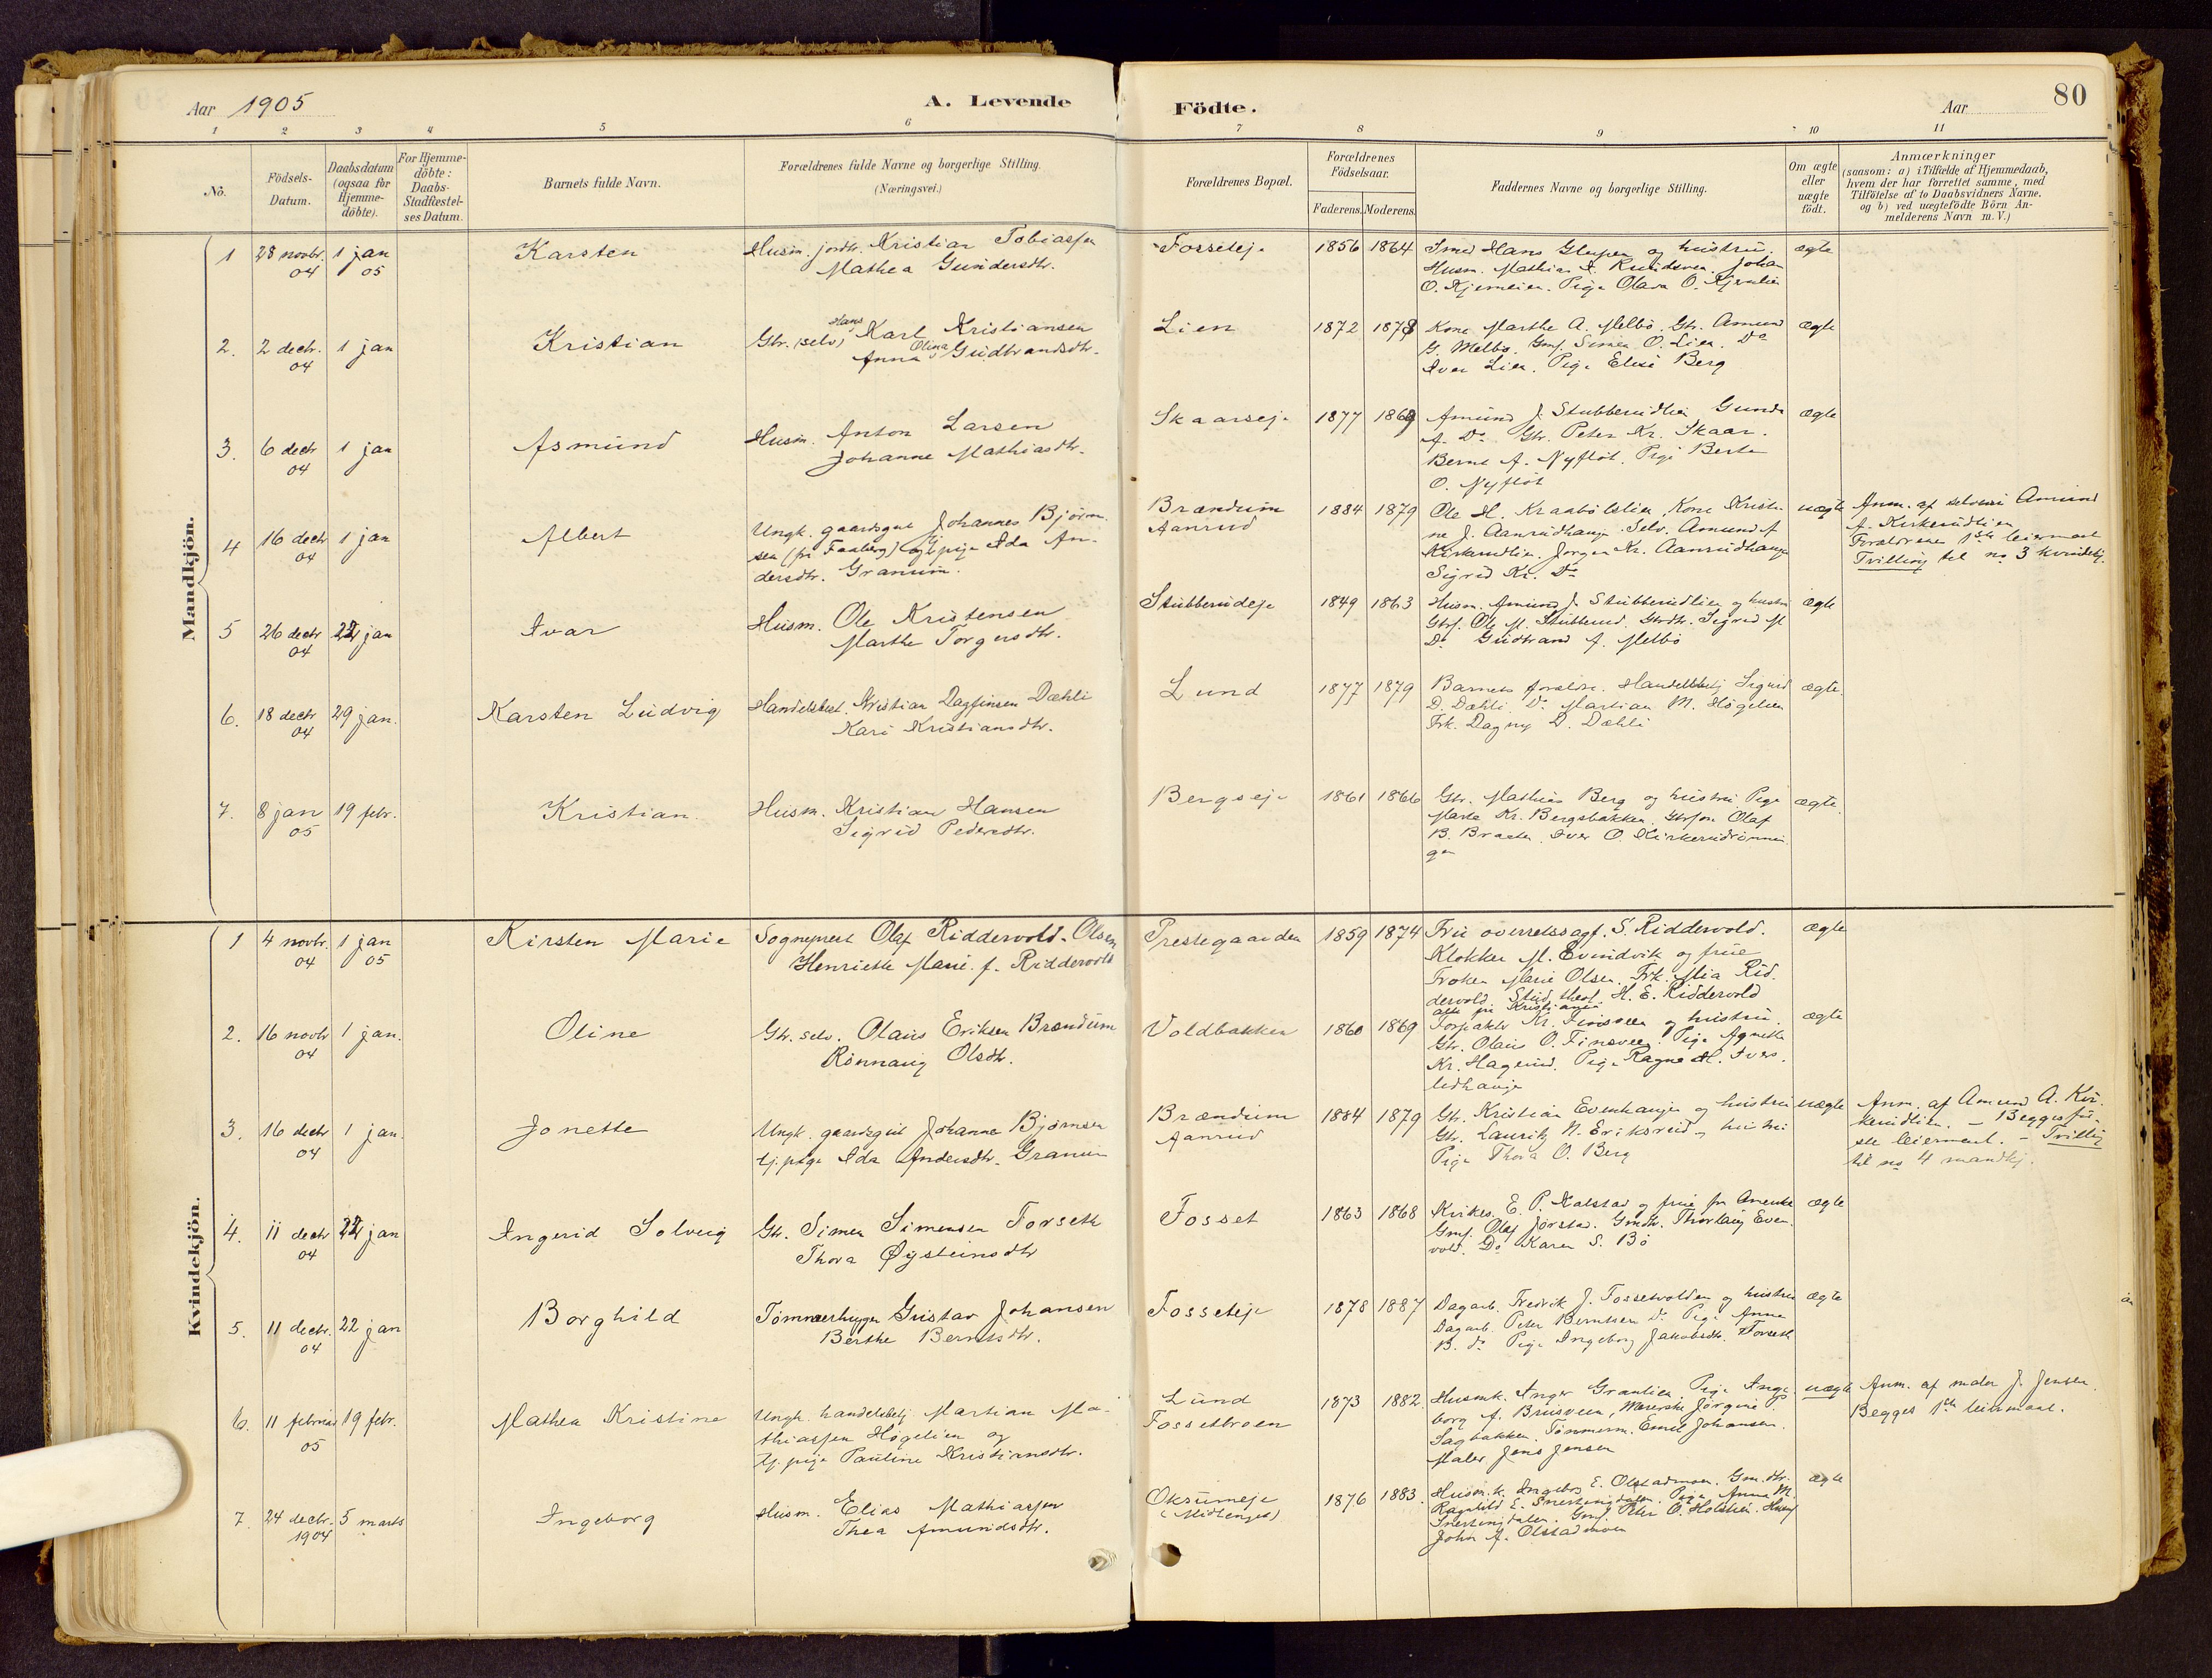 Aar 1905
A. Levende
Födte.
Aar
80
1 2 3 4 5 6 7 8 9 10 11
No.
Födsels-
Datum.
Daabsdatum
(ogsaa for
Hjemme-
döbte).
For Hjemme-
döbte:
Daabs-
Stadfæstel-
ses Datum.
Barnets fulde Navn.
Forældrenes fulde Navne og borgerlige Stilling.
(Næringsvei.)
Forældrenes Bopæl.
Forældrenes
Födselsaar.
Faderens. Moderens.
Faddernes Navne og borgerlige Stilling.
Om ægte
eller
uægte
födt.
Anmærkninger
(saasom: a) i Tilfælde af Hjemmedaab,
hvem der har forrettet samme, med
Tilföielse af to Daabsvidners Navne.
og b) ved uægtefödte Börn An-
melderens Navn m. V.)
Mandkjön.
1 28 novbr. 04 1 jan 05 Karsten
Husm. jordbr. Kristian Tobiassen
Mathea Gundersdtr.
Fosseteje 1856 1864
Smed Hans Glupen og hustru.
Husm. Mathias A. Knudsveen. Johan
O. Kjernlien. Pige Olava O. Kjernlien
ægte
2. 2 decbr. 04 1 jan Kristian
Gbr. (selv) Hans Karl Kristiansen
Anna Olina Gudbrandsdtr.
Lien 1872 1878
Kone Marthe A. Melbö. Gbr. Amund
G. Melbö. Gmf. Simen O. Lien. Do
Iver Lien. Pige Elise Berg
ægte
3. 6 decbr 04 1 jan Asmund
Husm. Anton Larsen
Johanne Mathiasdtr.
Skaarseje 1877 1869
Amund J. Stubberudlien Gunda
A. Do Gbr. Peter Kr. Skaar.
Bernt A. Nyflöt. Pige Berte
O. Nyflöt
ægte
4 16 decbr 04 1 jan Albert
Ungk. gaardsgut Johannes Björn-
sen (fra Faaberg) og tj. pige Ida An-
dersdtr. Granum.
Brændum
Aanrud
1884 1879
Ole H. Kraabölslien Kone Kristi-
ne J. Aanrudhaugen. Selv. Amund A
Kirkerudlien. Jörgen Kr. Aanrudhaugen
Sigrid Kr. Do
uægte
Anm. af selveier Amund
A. Kirkerudlien
Forældrene 1ste leiermaal
Tvilling til no 3 kvindekj.
5 26 decbr 04 22 jan Ivar
Husm. Ole Kristensen
Marthe Torgersdtr.
Stubberudeje 1849 1863
Husm. Amund J. Stubberudlien og hustru
Gbrs. Ole M. Stubberud. Gbrdtr. Sigrid M
Do Gudbrand A. Melbö
ægte
6. 18 decbr 04 29 jan. Karsten Ludvig
Handelsbest. Kristian Dagfinsen Dæhli
Kari Kristiansdtr.
Lund 1877 1879
Barnets forældre. Handelsbetj Sigurd
D. Dæhli Do Martian M. Högelien
Frk. Dagny D. Dæhli
ægte.
7. 8 jan 05 19 febr. Kristian.
Husm. Kristian Hansen
Sigrid Pedersdtr.
Bergseje 1861 1866
Gbr. Mathias Berg og hustru Pige
Marte Kr. Bergsbakken. Gbrsön Olaf
B. Braaten. Iver O. Kirkerudrönnin
gen
ægte.
Kvindekjön.
1 4 novbr. 04 1 jan 05 Kirsten Marie
Sogneprest Olaf Riddervold-Olsen
Henriette Marie f. Riddervold
Prestegaarden 1859 1874
Fru overretssagf. S. Riddervold.
Klokker M. Evindvik og frue
Fröken Marie Olsen. Frk. Mia Rid-
dervold. Stud. theol. H. E. Riddervold
alle fra Kristiania
ægte
2. 16 novbr 04 1 jan. Oline
Gbr. selv. Olaus Eriksen Brændum
Rönnaug Olsdtr.
Voldbakken 1860 1869
Forpakter Kr. Finsveen og hustru.
Gbr. Olaus O. Finsveen. Pige Agnethe
Kr. Hagerud. Pige Ragna M. Ivers-
lidhauge
ægte
3. 16 decbr 04 1 jan. Jonette
Ungk. gaardsgut Johanne Björnsen
tj. pige Ida Andersdtr. Granum
Brændum
Aanrud
1884 1879
Gbr. Kristian Evenhaugen og hustru
Gbr. Lauritz N. Eriksrud og hustru
Pige Thora O. Berg
uægte
Anm. af Amund A. Kir-
kerudlien. – Begges för
ste leiermaal. – Tvilling
til no 4 mandkj.
4. 11 decbr 04 22 jan Ingerid Solveig
Gbr. Simen Simensen Forseth
Thora Öysteinsdtr
Fosset 1863 1868
Kirkes. E. P. Kalstad og frue
Gmf. Olaf Jörstad. Gmdtr. Thorlaug Even-
vold. Do Karen S. Bö
ægte
5. 11 decbr. 04 22 jan Borghild
Tömmerhugger Gustav Johansen
Berthe Berntsdtr.
Fosseteje 1878 1887
Dagarb. Fredrik J. Fossetvolden og hustru
Dagarb. Peter Berntsen Do Pige Anna
B. do Pige Ingeborg Jakobsdtr. Forseth
ægte
6. 11 februar 05 19 febr. Mathea Kristine
Ungk. handelsbetj Martian Ma-
thiassen Högelien og
tj. pige Pauline Kristiansdtr.
Lund
Fossetbroen
1873 1882
Husmk. Inger Granlien. Pige Inge-
borg A. Brusveen, Meierske Jörgine P.
Sagbakken. Tömmerm. Emil Johansen.
Maler Jens Jensen
uægte
Anm. af maler J. Jensen.
Begges 1ste leiermaal.
7. 24 decbr. 1904 5 marts Ingeborg
Husm. Elias Mathiassen
Thea Amundsdtr.
Oksumeje
(Midtenget)
1876 1883.
Husm.k. Ingeborg E. Olstadmoen. Gm.dtr.
Ragnhild E. Snertingdalen. Pige Anna M.
Snertingdalen. Gmf. Peter O. Holstien. Husmf
John A. Olstadmoen
ægte